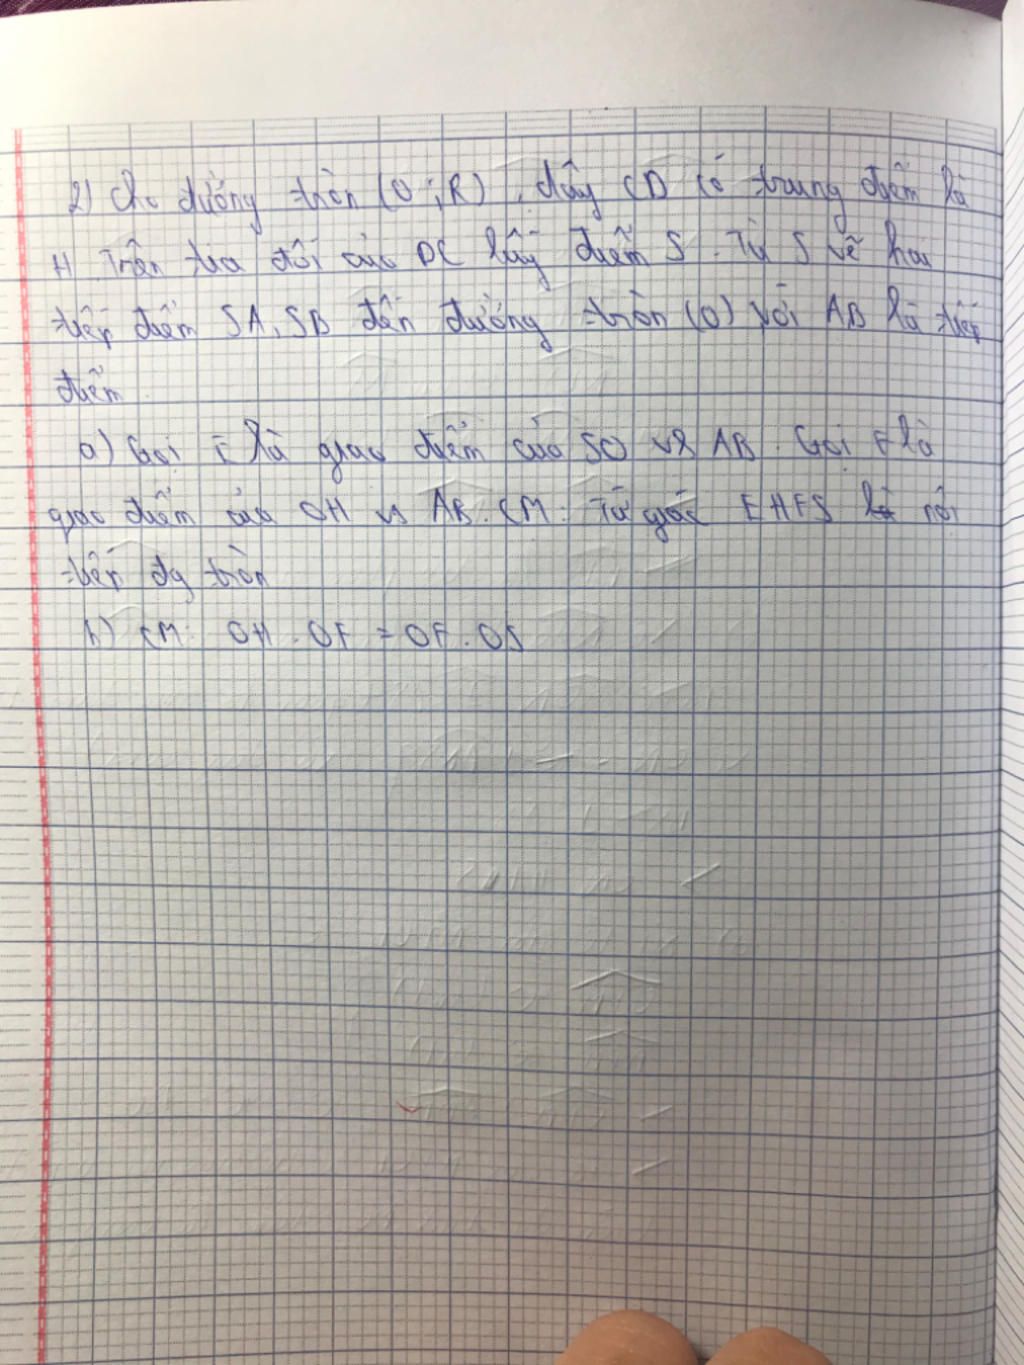 2) Cho đường tròn (O;R), dây CD có trung điểm là
H. Trên tia đối của DC lấy điểm S. Từ S vẽ hai
tiếp điểm SA, SB đến đường tròn (O) với AB là tiếp
điểm.
a) Gọi E là giao điểm của SO vs AB. Gọi F là
giao điểm của OH vs AB. CM: Tứ giác EHFS là nội
tiếp đg tròn
b) CM: OH . OF = OF . OS